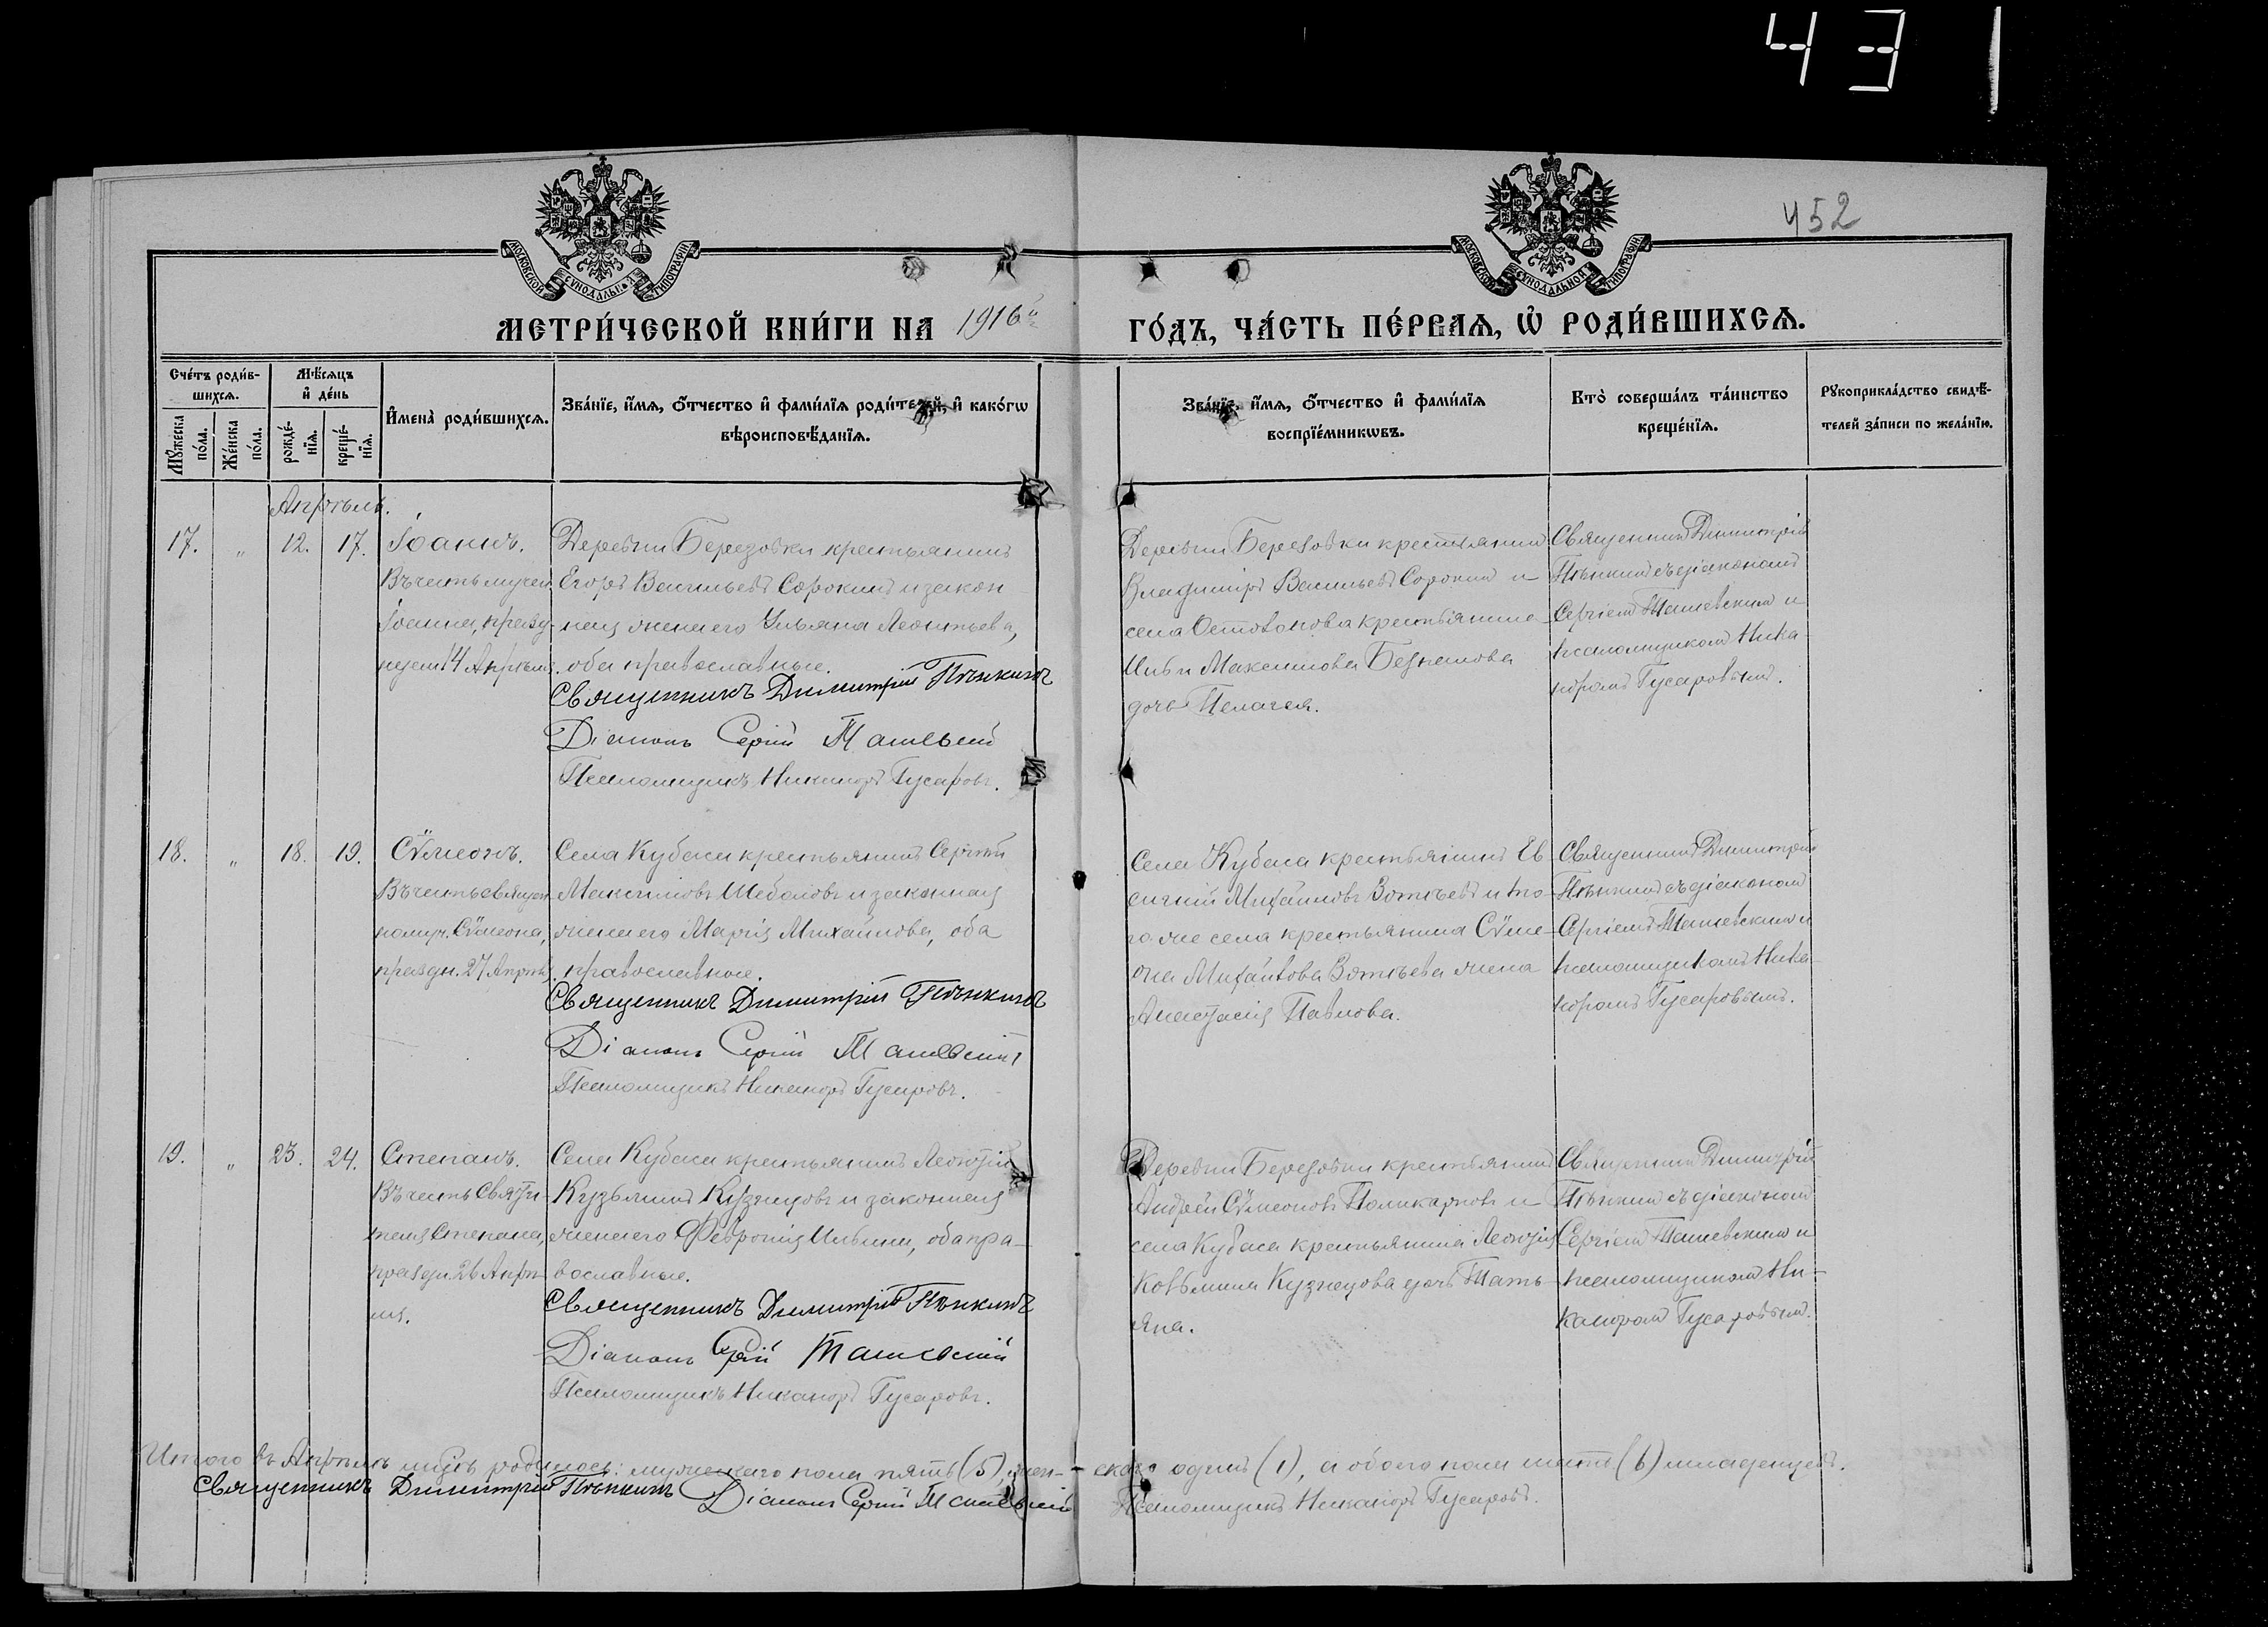 431
452
МОСКОВСКОЙ СѴНОДАЛЬНОЙ ТИПОГРАФІИ
МОСКОВСКОЙ СѴНОДАЛЬНОЙ ТИПОГРАФІИ
МЕТРИ́ЧЕСКОЙ КНИ́ГИ НА 1916й ГО́ДЪ, ЧА́СТЬ ПЕ́РВАЯ, Ѡ РОДИ́ВШИХСЯ.
Сче́тъ роди́в-
шихся.
Мѣ́сяцъ
и де́нь
Мꙋ́жеска по́ла.
Же́нска по́ла.
рожде́-
нїя.
креще́-
нїя.
Имена̀ роди́вшихся.
Зва́нїе, и́мя, о́тчество и фами́лїя роди́телей, и како́гѡ
вѣроисповѣ́данїя.
Зва́нїе, и́мя, о́тчество и фами́лїя
воспрїе́мникѡвъ.
Кто̀ соверша́лъ та́инство
креще́нїя.
Рꙋкоприкла́дство свидѣ́-
телей за́писи по жела́нїю.
Апрѣль.
17. „ 12. 17. Іоаннъ.
Въ честь мучен.
Іоанна, празд-
нуем. 14 Апрѣля.
Деревни Березовки крестьянинъ
Егоръ Васильевъ Сорокинъ и закон
ная жена его Ульяна Леонтьева,
оба православные.
Священникъ Димитрій Пѣнкинъ
Діаконъ Сергій Ташевскій
Псаломщикъ Никаноръ Гусаровъ.
Деревни Березовки крестьянинъ
Владиміръ Васильевъ Сорокинъ и
села крестьянина
Ильи Максимова
дочь Пелагея.
Священникъ Димитрій
Пѣнкинъ съ діакономъ
Сергіемъ Ташевскимъ и
псаломщикомъ Ника-
норомъ Гусаровымъ.
18. „ 18. 19. Сѵмеонъ.
Въ честь священ-
номуч. Сѵмеона,
праздн. 27 Апрѣля.
Села Кубаса крестьянинъ Сергѣй
Максимовъ Шебаловъ и законная
жена его Марія Михайлова, оба
православные.
Священникъ Димитрій Пѣнкинъ
Діаконъ Сергій Ташевскій
Псаломщикъ Никаноръ Гусаровъ.
Села Кубаса крестьянинъ Ев-
сигній Михайловъ и то-
го же села крестьянина Сѵме-
она Михайлова жена
Анастасія Павлова.
Священникъ Димитрій
Пѣнкинъ съ діакономъ
Сергіемъ Ташевскимъ и
псаломщикомъ Ника-
норомъ Гусаровымъ.
19. „ 23. 24. Степанъ.
Въ честь Святи-
теля Степана,
праздн. 26 Апрѣ-
ля.
Села Кубаса крестьянинъ Леонтій
Кузьминъ Кузнецовъ и законная
жена его Февронія Ильина, оба пра-
вославные.
Священникъ Димитрій Пѣнкинъ
Діаконъ Сергій Ташевскій
Псаломщикъ Никаноръ Гусаровъ.
Деревни Березовки крестьянинъ
Андрей Сѵмеоновъ Поликарповъ и
села Кубаса крестьянина Леонтія
Козьмина Кузнецова дочь Тать-
яна.
Священникъ Димитрій
Пѣнкинъ съ діакономъ
Сергіемъ Ташевскимъ и
псаломщикомъ Ни-
каноромъ Гусаровымъ.
Итого въ Апрѣлѣ мцѣ родилось: мужескаго пола пять (5), жен-скаго одинъ (1), а обоего пола шесть (6) младенцевъ.
Священникъ Димитрій Пѣнкинъ Діаконъ Сергій Ташевскій Псаломщикъ Никаноръ Гусаровъ.